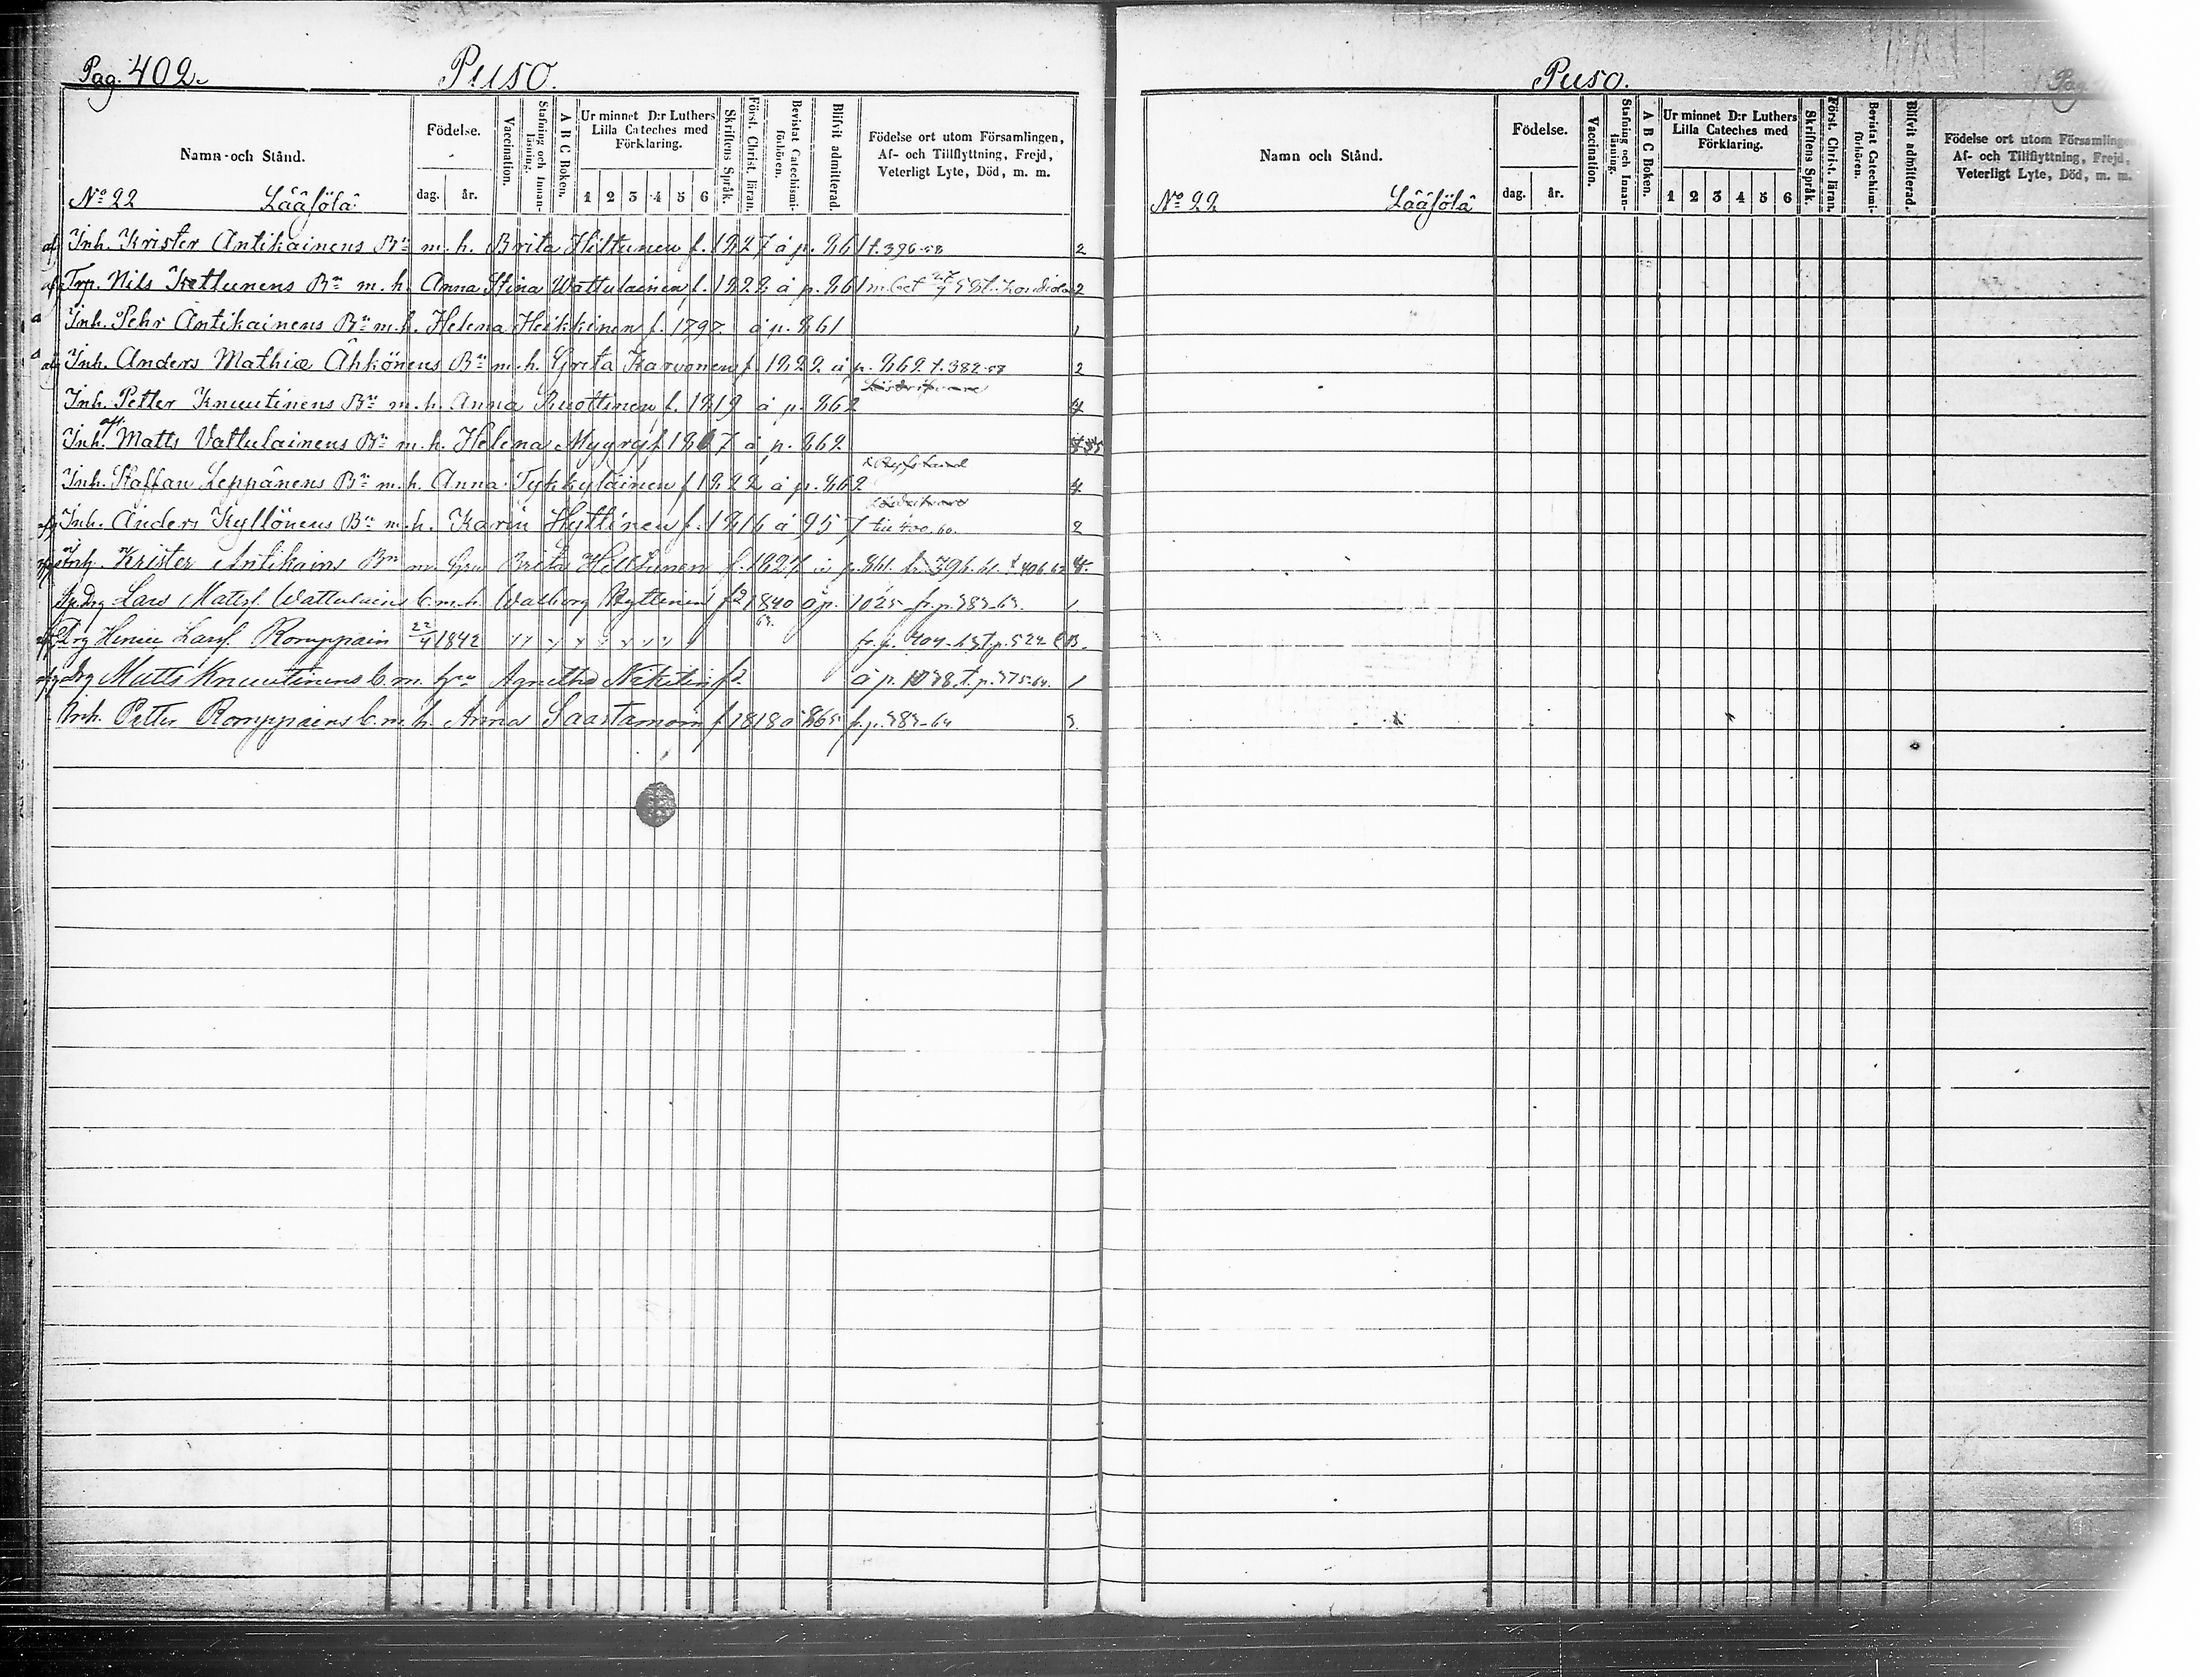 Pag. 402.
Puso.
Namn och Stånd.
Födelse.
dag. år.
Vaccination.
Stafning och Innanläsning.
A B C Boken.
Ur minnet D:r Luthers
Lilla Cateches med
Förklaring.
1 2 3 4 5 6
Skriftens Språk.
Först. Christ. läran.
Bevistat Catechismiförhören.
Blifvit admitterad.
Födelse ort utom Församlingen,
Af- och Tillflyttning, Frejd,
Veterligt Lyte, Död, m. m.
No 22 Lääsölä
Inh. Krister Antikainens Bn m. h. Brita Hiltunen f. 1827 å p. 861 t. 396-58 2
Trp. Nils Kettunens Bn m. h. Anna Stina Wattulainen f. 1828 å p. 861 m. bet 2
Inh. Pehr Antikainens Bn m. h. Helena Heikkinen f. 1797 å p. 861 1
Inh. Anders Mathiæ Ähkönens Bn m. h. Greta Karvonen f. 1822 å p. 862 t. 382-58 2
Inh. Petter Knuutinens Bn m. h. Anna Ruottinen f. 1819 å p. 862
Inh. Matts Vattulainens Bn m. h. Helena Myyry f. 1807 å p. 862
Inh. Staffan Leppänens Bn m. h. Anna Tykkyläinen f 1822 å p. 862
Inh. Anders Kyllönens Bn m. h. Karin Hyttinen f. 1816 å 957 till 400-60. 2
Inh. Krister Antikains Bn m. Brita Hiltunen f. 1827 å p. 861. fr. 396. 61. t 406
Lars Matsf. Wattulains b. m. h. Walborg Hyttinen f 1840 å p. 1025 fr. p. 383-63. 1
Drg Henric Larsf. Romppain 22/4 1842 fr. p. 404-63 t. p. 522
Drg Matts Knuutinens b. m. Agnetha Nikitin å p. 1038. t. p. 375-64. 1
Inh. Petter Romppains b. m. h. Anna Saastamoin f 1818 å 865 fr. p. 383-64 3
Puso.
Namn och Stånd.
Födelse.
dag. år.
Vaccination.
Stafning och Innanläsning.
A B C Boken.
Ur minnet D:r Luthers
Lilla Cateches med
Förklaring.
1 2 3 4 5 6
Skriftens Språk.
Först. Christ. läran.
Bevistat Catechismiförhören.
Blifvit admitterad.
Födelse ort utom Församlingen
Af- och Tillflyttning, Frejd,
Veterligt Lyte, Död, m. m.
No 22 Lääsölä